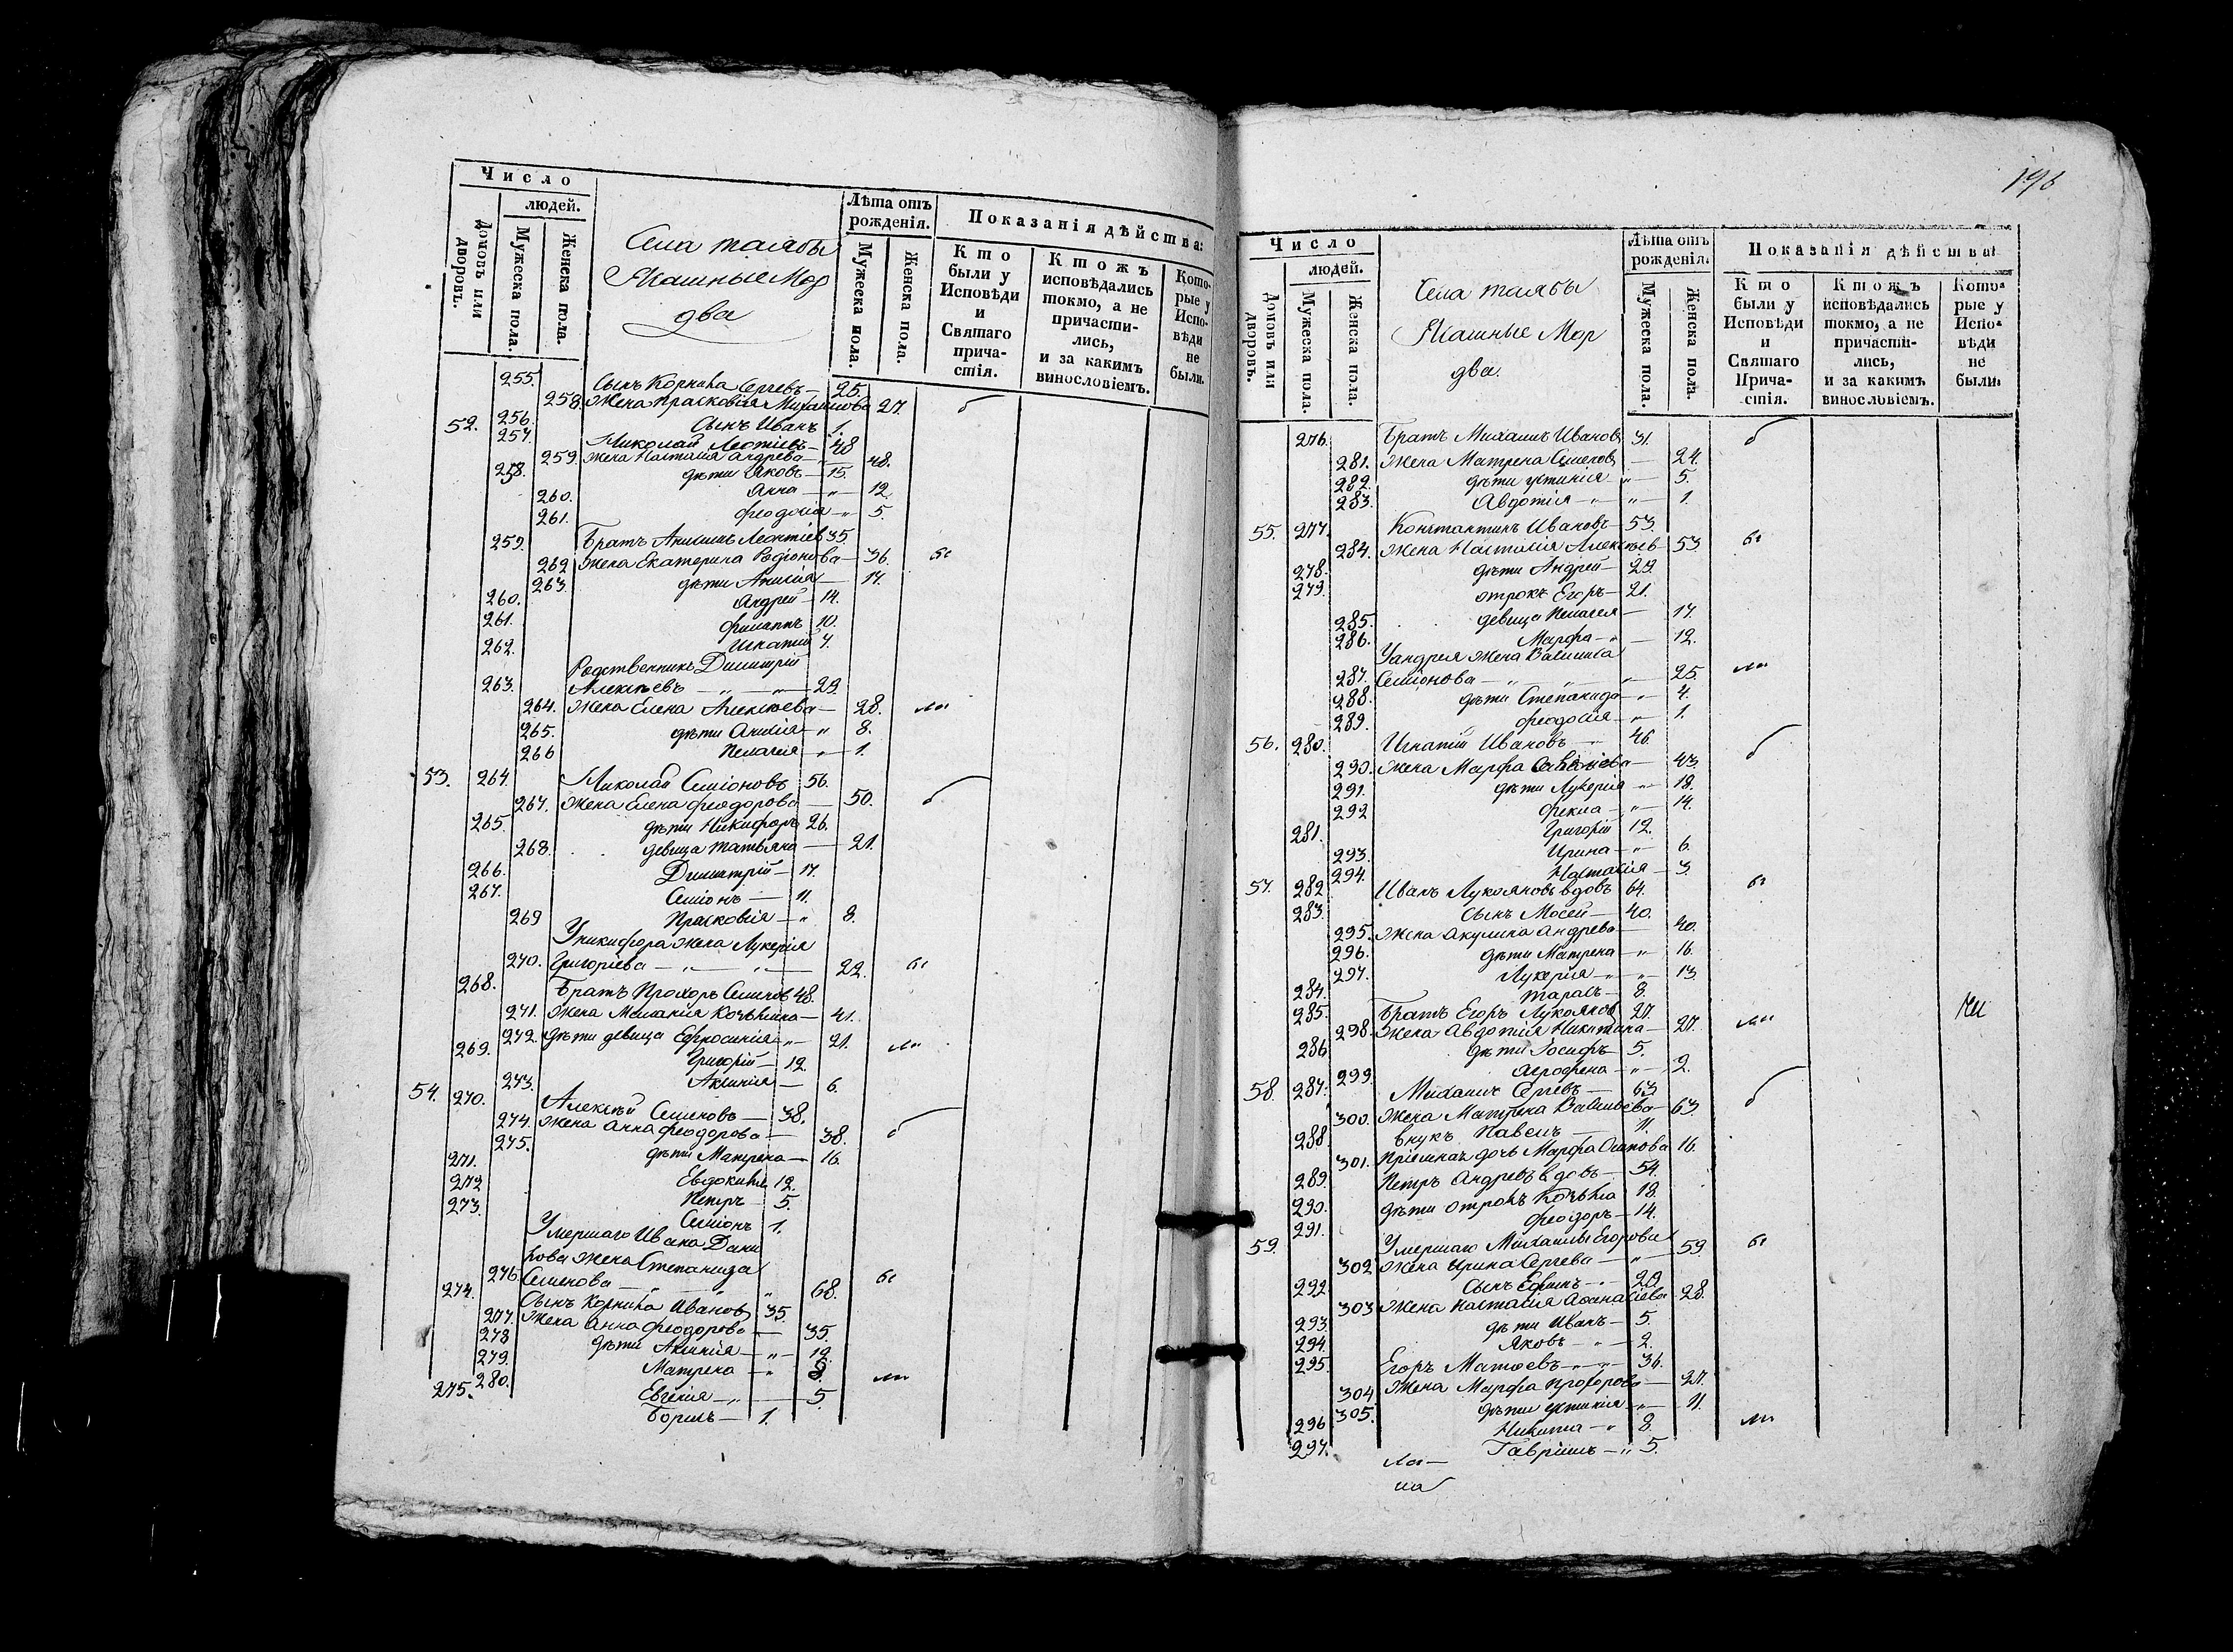 Число
людей.
Домовъ или дворовъ.
Мужеска пола.
Женска пола.
Села таябы
Ясашные Мор
два
Лѣта отъ рожденія.
Мужеска пола.
Женска пола.
Показанія дѣйства:
Кто были у Исповѣди и Святаго причастія.
Ктожъ исповѣдались токмо, а не причастились, и за какимъ винословіемъ.
Которые у Исповѣди не были.
255. Сынъ Корнила Сергевъ — 25.
258. Жена Прасковія Михаилова 27. б
256. Сынъ Иванъ 1.
52. 257. Николай Леонтіевъ — 48
259. Жена Настасія Андрева — 48.
258. дѣти Яковъ — 15.
260. Анна — 12.
261. Феодосія — 5.
259. Братъ Анисимъ Леонтіев 35
262 Жена Екатерина Родіонова — 36.
263. дѣти Анисія — 17.
260. Андрей — 14.
261. Филиппъ 10.
262. Игнатій 4.
Родственникъ Димитрій
263. Алексѣевъ — „ — „ — 29.
264. Жена Елена Алексѣева — 28.
265. дѣти Анисія — „ 8.
266 Пелагія — „ — 1.
53. 264. Николай Семіоновъ 56.
267. Жена Елена Феодорова — 50. б
265. дѣти Никифоръ 26.
268. девица Татьяна — 21.
266. Димитрій — 17.
267. Семіонъ — 11.
269 Прасковія — „ 8.
Уникифора жена Лукерія
270. Григоріева — „ — „ — 22.
268. Братъ Прохоръ Семенов 48.
271. Жена Меланія Козьмина — 41.
272. дѣти девица Ефросинія — „ — 21.
269. Григорій — 12.
273. Аксинія — 6.
54. 270. Алексѣй Семеновъ — 38.
274. Жена Анна Феодорова — 38. б
275. дѣти Матрена — 16.
271. Евдокимъ 12.
272 Петръ — 5.
273. Семіонъ 1.
Умершаго Ивана Дани
лова жена Степанида
276 Семенова — „ — „ 68.
274. Сынъ Корнила Иванов 35.
277. Жена Анна Феодорова — 35.
278 дѣти Аксинія — „ — 12.
279. Матрена — „ 9.
280. Евгенія — „ — 5.
275. Борисъ — 1.
196
Число
людей.
Домовъ или дворовъ.
Мужеска пола.
Женска пола.
Села таябы
Ясашные Мор
два.
Лѣта отъ рожденія.
Мужеска пола.
Женска пола.
Показанія дѣйства:
Кто были у Исповѣди и Святаго Причастія.
Ктожъ исповѣдались токмо, а не причастились, и за какимъ винословіемъ.
Которые у Исповѣди не были.
276. Братъ Михаилъ Иванов 31. б
281. Жена Матрена Семенов — 24.
282. дѣти Устинія — „ — 5.
283. Авдотія — „ — 1.
55. 277. Константинъ Ивановъ — 53.
284. Жена Настасія Алексѣев — 53
278. дѣти Андрей — 29.
279. отрокъ Егоръ — 21.
285. девица Пелагея — 17.
286. Марфа — „ — 12.
Уандрея жена Василиса
287. Семіонова — „ — „ — 25.
288. дѣти Степанида — „ 4.
289. Феодосія — „ 1.
56. 280. Игнатій Ивановъ — 46.
290. Жена Марфа Савеліева — 43 б
291. дѣти Лукерія — „ 18.
292 Фекла — „ — 14.
281. Григорій 12.
293. Ирина — „ — 6.
294. Настасія — 3.
57. 282 Иванъ Лукояновъ вдовъ 64.
283. Сынъ Мосей — 40.
295. Жена Акулина Андрева — 40.
296. дѣти Матрена — „ — 16.
297. Лукерія — „ — 13
284. Тарасъ — 8.
285. Братъ Егоръ Лукоянов 27.
298. Жена Авдотія Никитина — 27.
286 дѣти Іосифъ — 5.
299. Агрофена — „ — 2.
58. 287. Михаилъ Сергевъ — 63
300. Жена Матрена Васильева — 63. б
288. внукъ Павелъ — 11.
301. Пріемная дочь Марфа Осипова 16.
289. Петръ Андревъ вдовъ — 54.
290. дѣти отрокъ Козьма 18.
291. Феодоръ — 14.
59. Умершаго Михаилы Егорова
302 Жена Ирина Сергева — „ — 59.
292. Сынъ Ефимъ — „ — 29.
303 Жена Настасія Афанасіева 28.
293. дѣти Иванъ — 5.
294. Яковъ — „ — 2.
295. Егоръ Матвеевъ — „ — „ 36.
304 Жена Марфа Прохорова — 27.
305. дѣти Устинія — „ — 11.
296 Никита — „ 8.
297. Гаврилъ — „ 5.